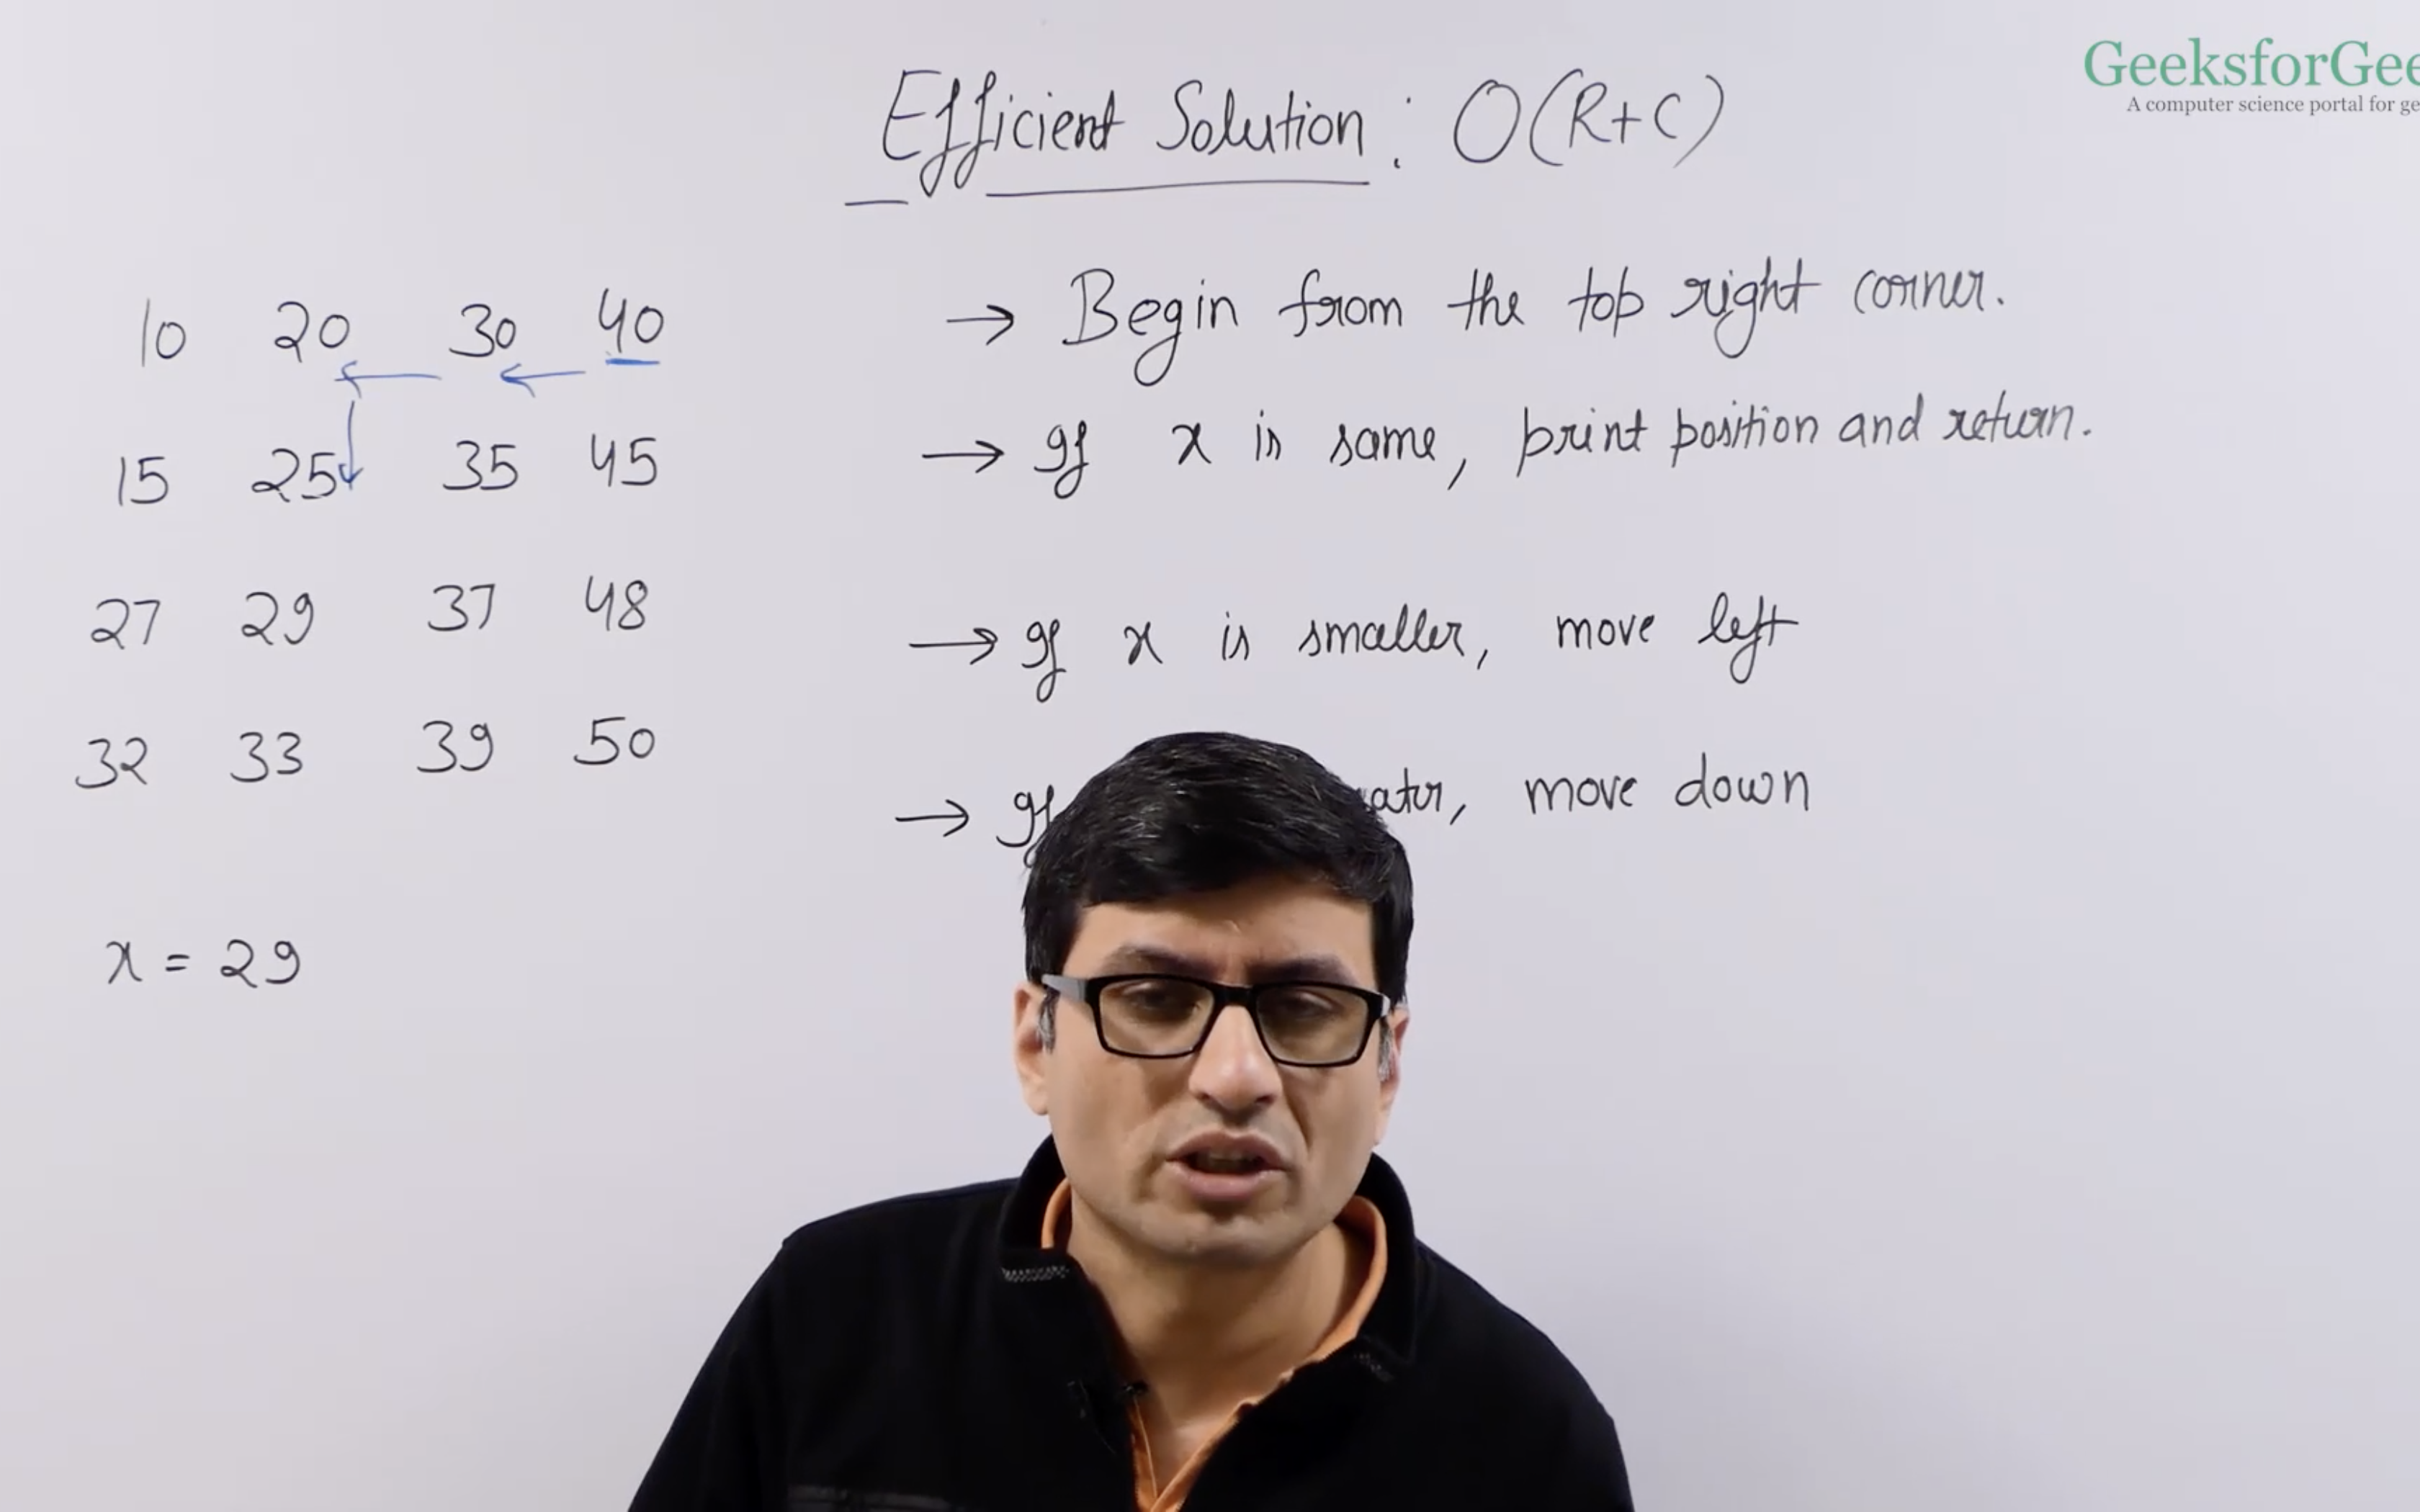 GeeksforGee
A computer science portal for ge
Efficient Solution : O(R+C)
10 20 30 40
15 25 35 45
27 29 37 48
32 33 39 50
x = 29
→ Begin from the top right corner.
→ If x is same, print position and return.
→ If x is smaller, move left
→ If move down